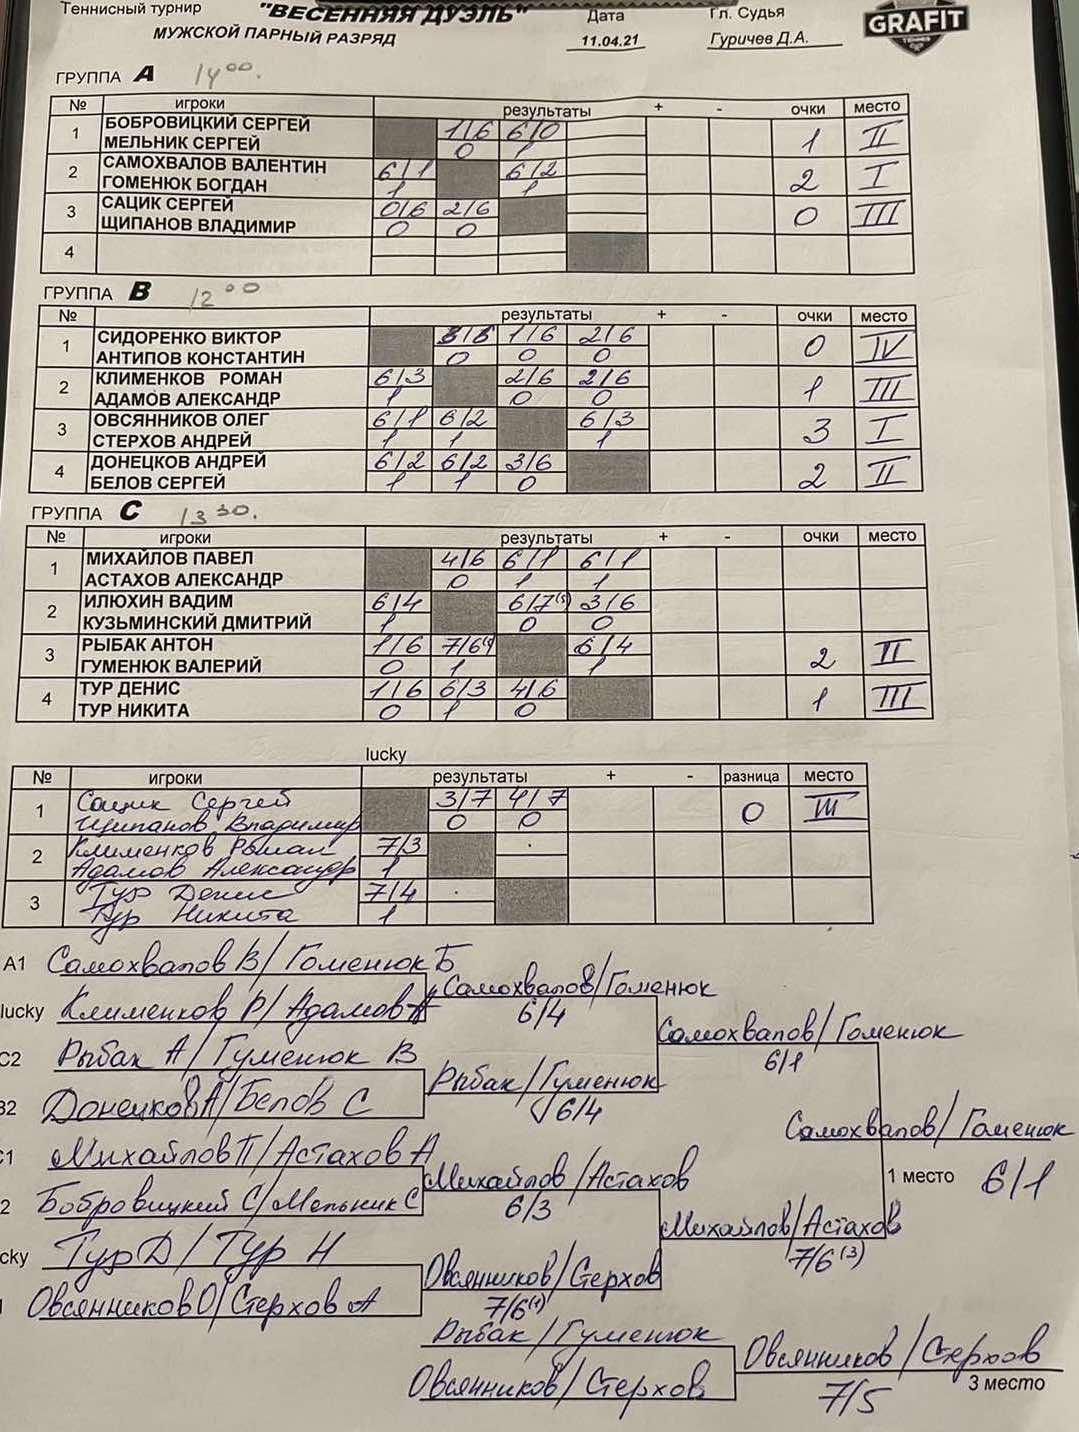 Теннисный турнир "ВЕСЕННЯЯ ДУЭЛЬ" Дата Гл. Судья
МУЖСКОЙ ПАРНЫЙ РАЗРЯД 11.04.21 Гуричев Д.А. GRAFIT
ГРУППА A 14 00.
№ игроки результаты + - очки место
1 БОБРОВИЦКИЙ СЕРГЕЙ 1/6 6/0 1 II
МЕЛЬНИК СЕРГЕЙ 0 1
2 САМОХВАЛОВ ВАЛЕНТИН 6/1 6/2 2 I
ГОМЕНЮК БОГДАН 1 1
3 САЦИК СЕРГЕЙ 0/6 2/6 0 III
ЩИПАНОВ ВЛАДИМИР 0 0
4
ГРУППА B 12 00
№ результаты + - очки место
1 СИДОРЕНКО ВИКТОР 3/6 1/6 2/6 0 IV
АНТИПОВ КОНСТАНТИН 0 0 0
2 КЛИМЕНКОВ РОМАН 6/3 2/6 2/6 1 III
АДАМОВ АЛЕКСАНДР 1 0 0
3 ОВСЯННИКОВ ОЛЕГ 6/1 6/2 6/3 3 I
СТЕРХОВ АНДРЕЙ 1 1 1
4 ДОНЕЦКОВ АНДРЕЙ 6/2 6/2 3/6 2 II
БЕЛОВ СЕРГЕЙ 1 1 0
ГРУППА C 13 30.
№ игроки результаты + - очки место
1 МИХАЙЛОВ ПАВЕЛ 4/6 6/1 6/1
АСТАХОВ АЛЕКСАНДР 0 1 1
2 ИЛЮХИН ВАДИМ 6/4 6/7(5) 3/6
КУЗЬМИНСКИЙ ДМИТРИЙ 1 0 0
3 РЫБАК АНТОН 1/6 7/6(5) 6/4 2 II
ГУМЕНЮК ВАЛЕРИЙ 0 1 1
4 ТУР ДЕНИС 1/6 6/3 4/6 1 III
ТУР НИКИТА 0 1 0
lucky
№ игроки результаты + - разница место
1 Сацик Сергей 3/7 4/7 0 III
Щипанов Владимир 0 0
2 Клименков Роман 7/3
Адамов Александр 1
3 Тур Денис 7/4
Тур Никита 1
A1 Самохвалов В/ Гоменюк Б
Самохвалов/Гоменюк
lucky Клименков Р/ Адамов А
6/4
Самохвалов/Гоменюк
C2 Рыбак А/ Гуменюк В
6/1
Рыбак/Гуменюк
B2 Донецков А/Белов С
6/4
Самохвалов/Гоменюк
C1 Михайлов П/Астахов А
Михайлов/Астахов
1 место 6/1
2 Бобровицкий С/Мельник С
6/3
Михайлов/Астахов
cky Тур Д/ Тур Н
7/6(3)
Овсянников/Стерхов
Овсянников О/Стерхов А
7/6(1)
Рыбак/Гуменюк
Овсянников/Стерхов
Овсянников/Стерхов
3 место
7/5